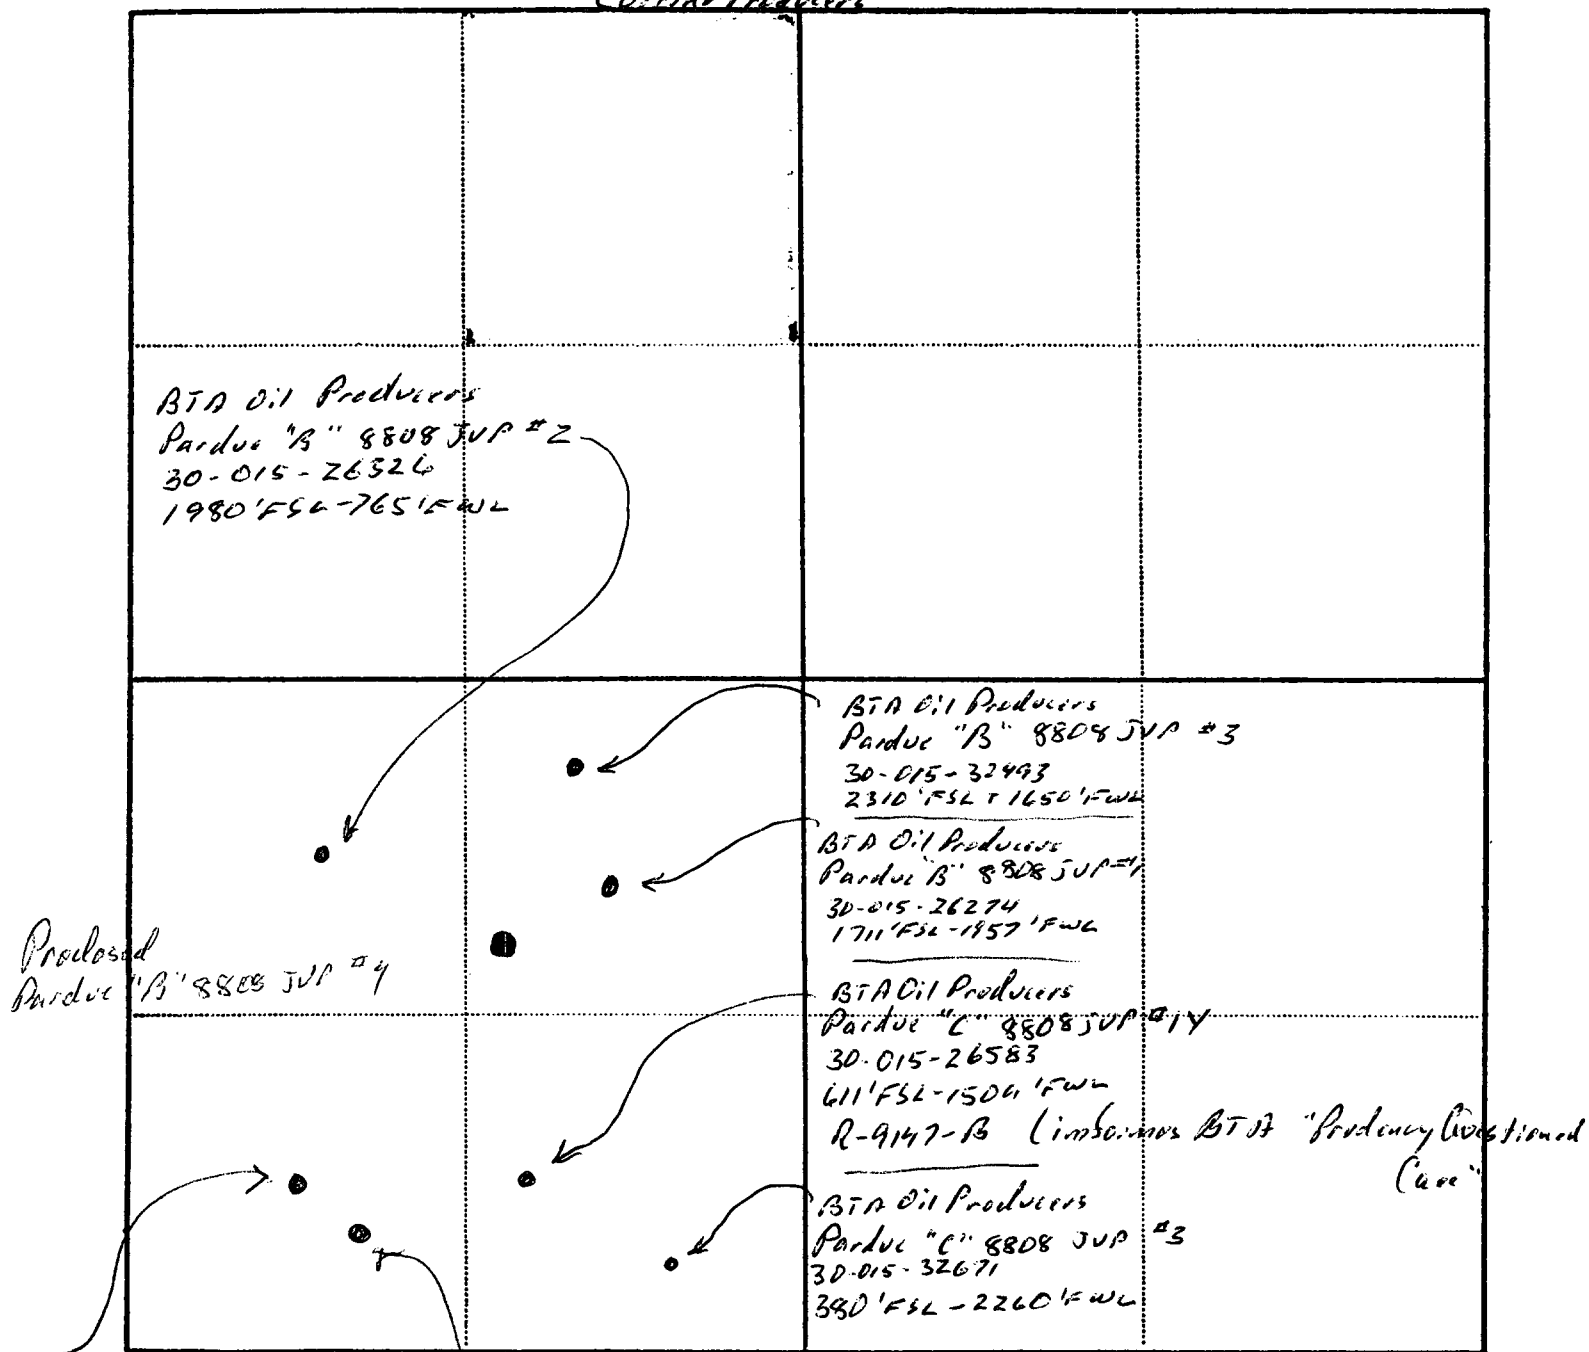 Producers
BTA Oil Producers
Pardue "B" 8808 JVP #2
30-015-26326
1980'FSL-765'FWL
BTA Oil Producers
Pardue "B" 8808 JVP #3
30-015-32493
2310'FSL + 1650'FWL
BTA Oil Producers
Pardue "B" 8808 JVP #1
30-015-26274
1711'FSL-1957'FWL
Pardue "B" 8808 JVP #4
BTA Oil Producers
Pardue "C" 8808 JVP #1Y
30-015-26583
611'FSL-1504'FWL
R-9147-B BTA
BTA Oil Producers
Pardue "C" 8808 JVP #3
30-015-32671
380'FSL-2260'FWL